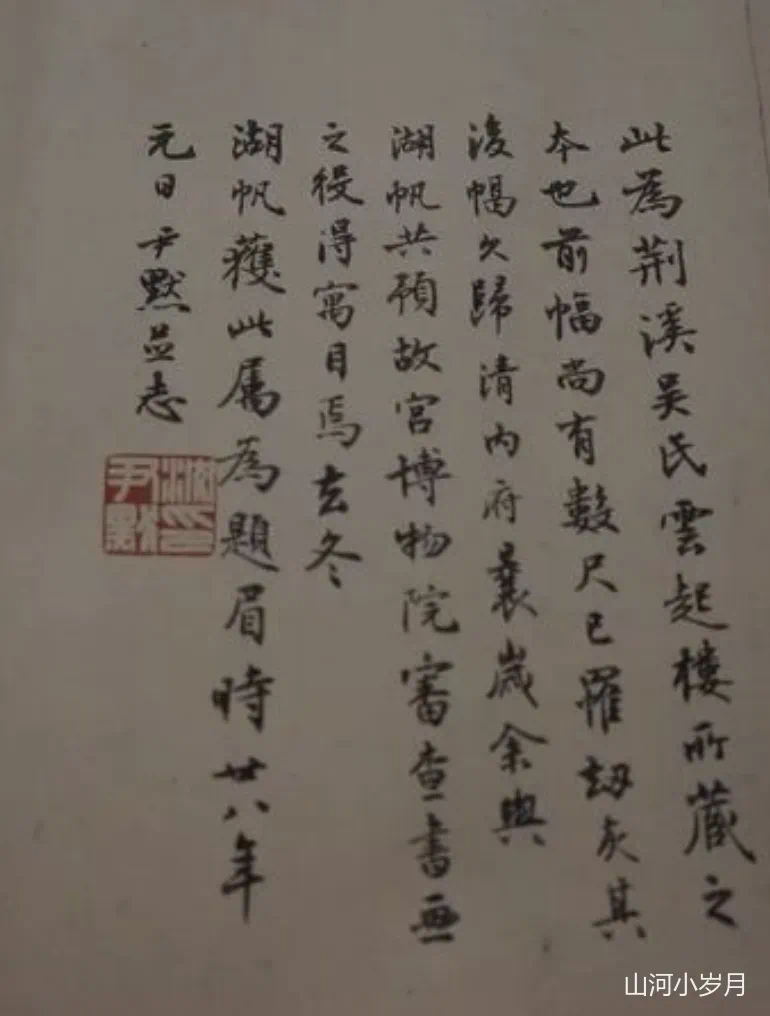 此為荆溪吴氏雲起樓所蔵之
本也前幅尚有數尺已罹劫灰其
後幅久歸清内府曩歲余與
湖帆共預故宫博物院審查書畫
之役得寓目焉去冬
湖帆獲此属為題眉時廿八年
元日尹默并志
沈尹默印
山河小岁月